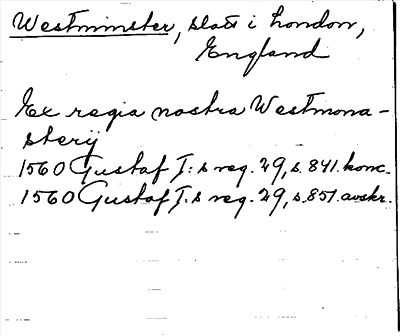 Westminster, slott i London,
England
Ex regia nostra Westmona-
sterij
1560 Gustaf I:s reg. 29, s. 841. konc.
1560 Gustaf I:s reg. 29, s. 851. avskr.